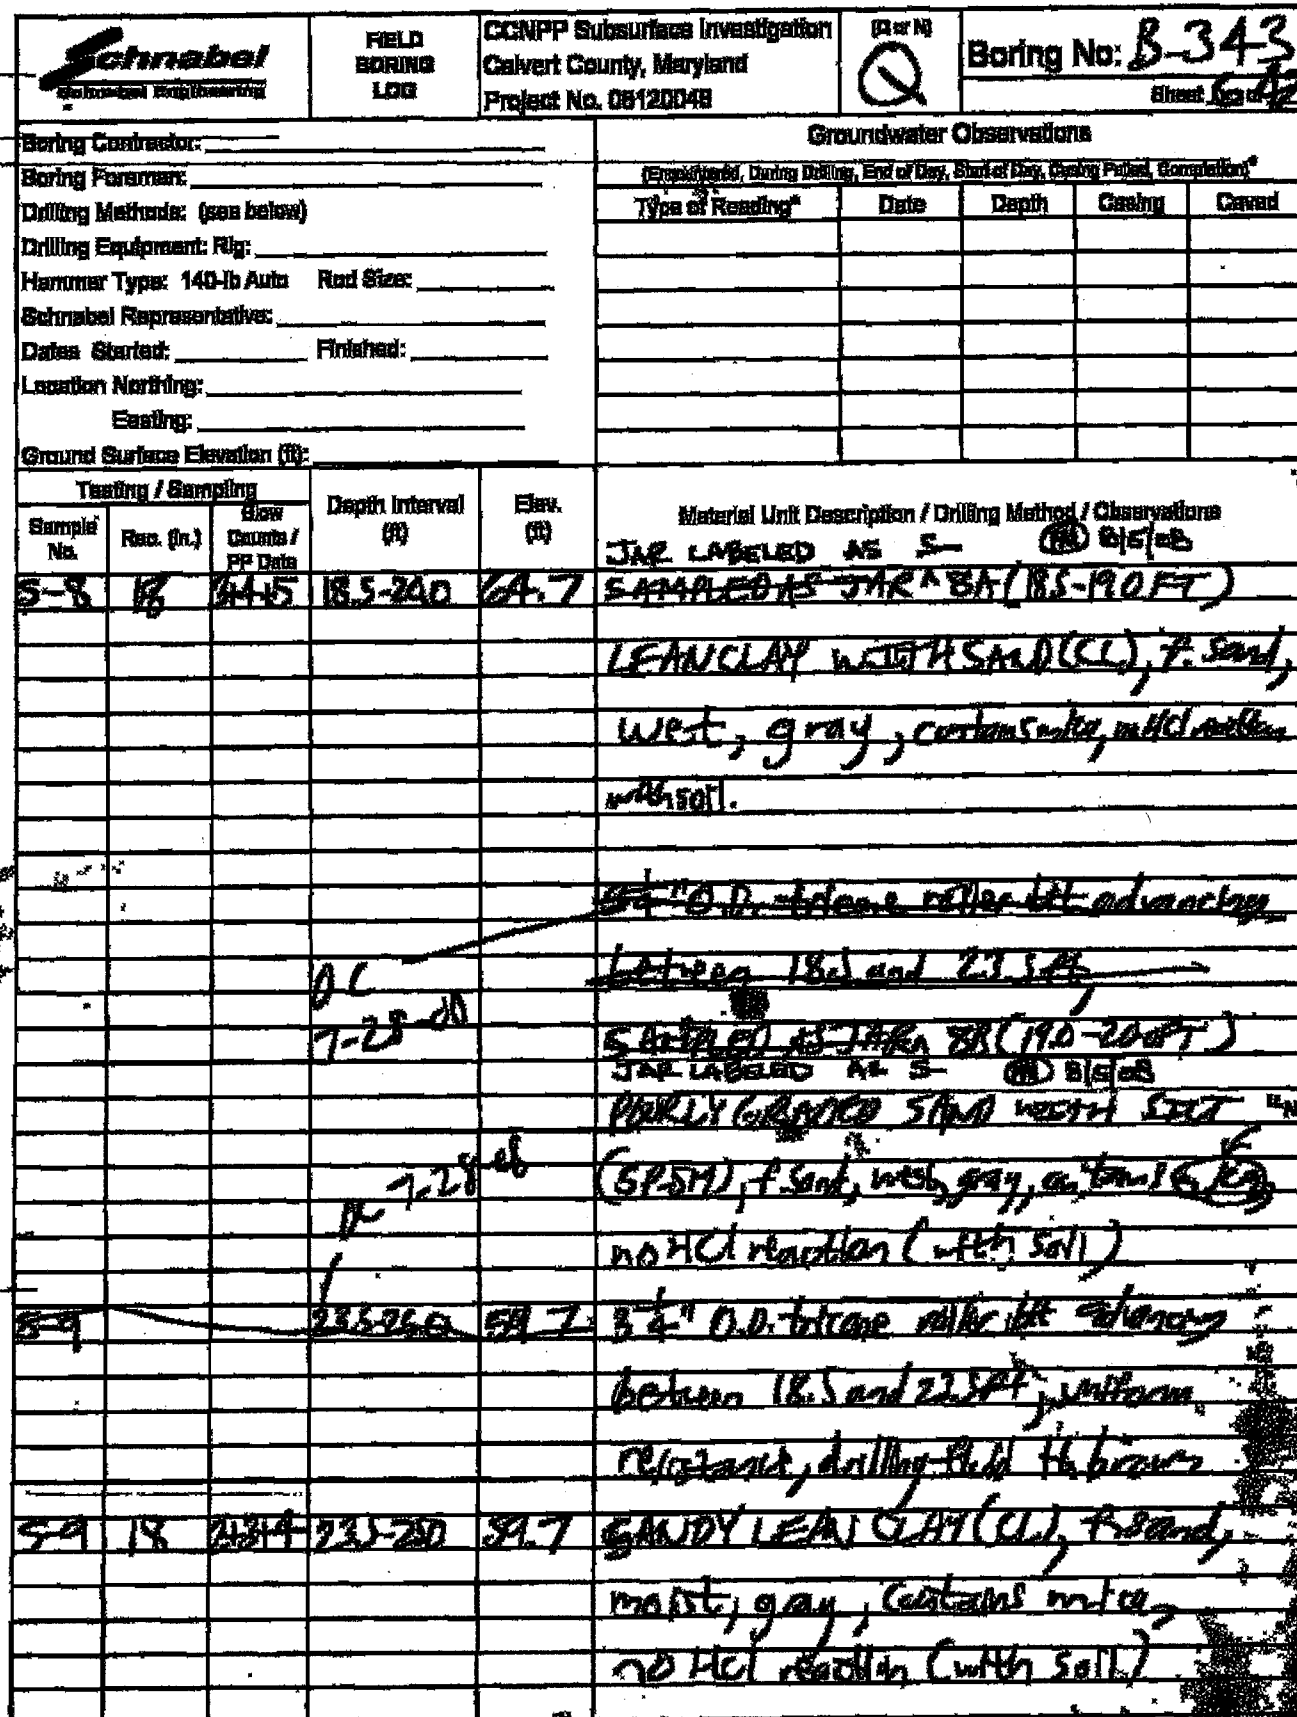 Schnabel
Schnabel Engineering
FIELD
BORING
LOG
CCNPP Subsurface Investigation
Calvert County, Maryland
Project No. 06120048
(Q or N)
Q
Boring No: B-343
Sheet of
Boring Contractor:
Boring Foreman:
Drilling Methods: (see below)
Drilling Equipment: Rig:
Hammer Type: 140-lb Auto Rod Size:
Schnabel Representative:
Dates Started: Finished:
Location Northing:
Easting:
Ground Surface Elevation (ft):
Groundwater Observations
(Encountered, During Drilling, End of Day, Start of Day, Casing Pulled, Completion)*
Type of Reading* Date Depth Casing Caved
Testing / Sampling
Sample No. Rec. (in.) Blow Counts / PP Data Depth Interval (ft) Elev. (ft) Material Unit Description / Drilling Method / Observations
JAR LABELED AS S- 8/5/08
S-8 18 3+4+5 18.5-20.0 64.7 SAMPLED AS JAR ^ 8A (18.5-19.0 FT)
LEAN CLAY WITH SAND (CL), f. sand,
wet, gray, contains mica, no HCl reaction
with soil.
O.D. tricone roller bit advancing
between 18.5 and 23.5 ft,
7-28-08
SAMPLED AS JAR ^ 8B (19.0-20.0 FT)
JAR LABELED AS S- 8/5/08
POORLY GRADED SAND WITH SILT
(SP-SM), f. sand, wet, gray, contains
7-28-08
no HCl reaction (with soil)
S-9 23.5-25.0 59.7 3 1/4" O.D. tricone roller bit advancing
between 18.5 and 23.5 FT, uniform
resistance, drilling fluid th brown
S-9 18 2+3+4 23.5-25.0 59.7 SANDY LEAN CLAY (CL), f. sand,
moist, gray, contains mica,
no HCl reaction (with soil)